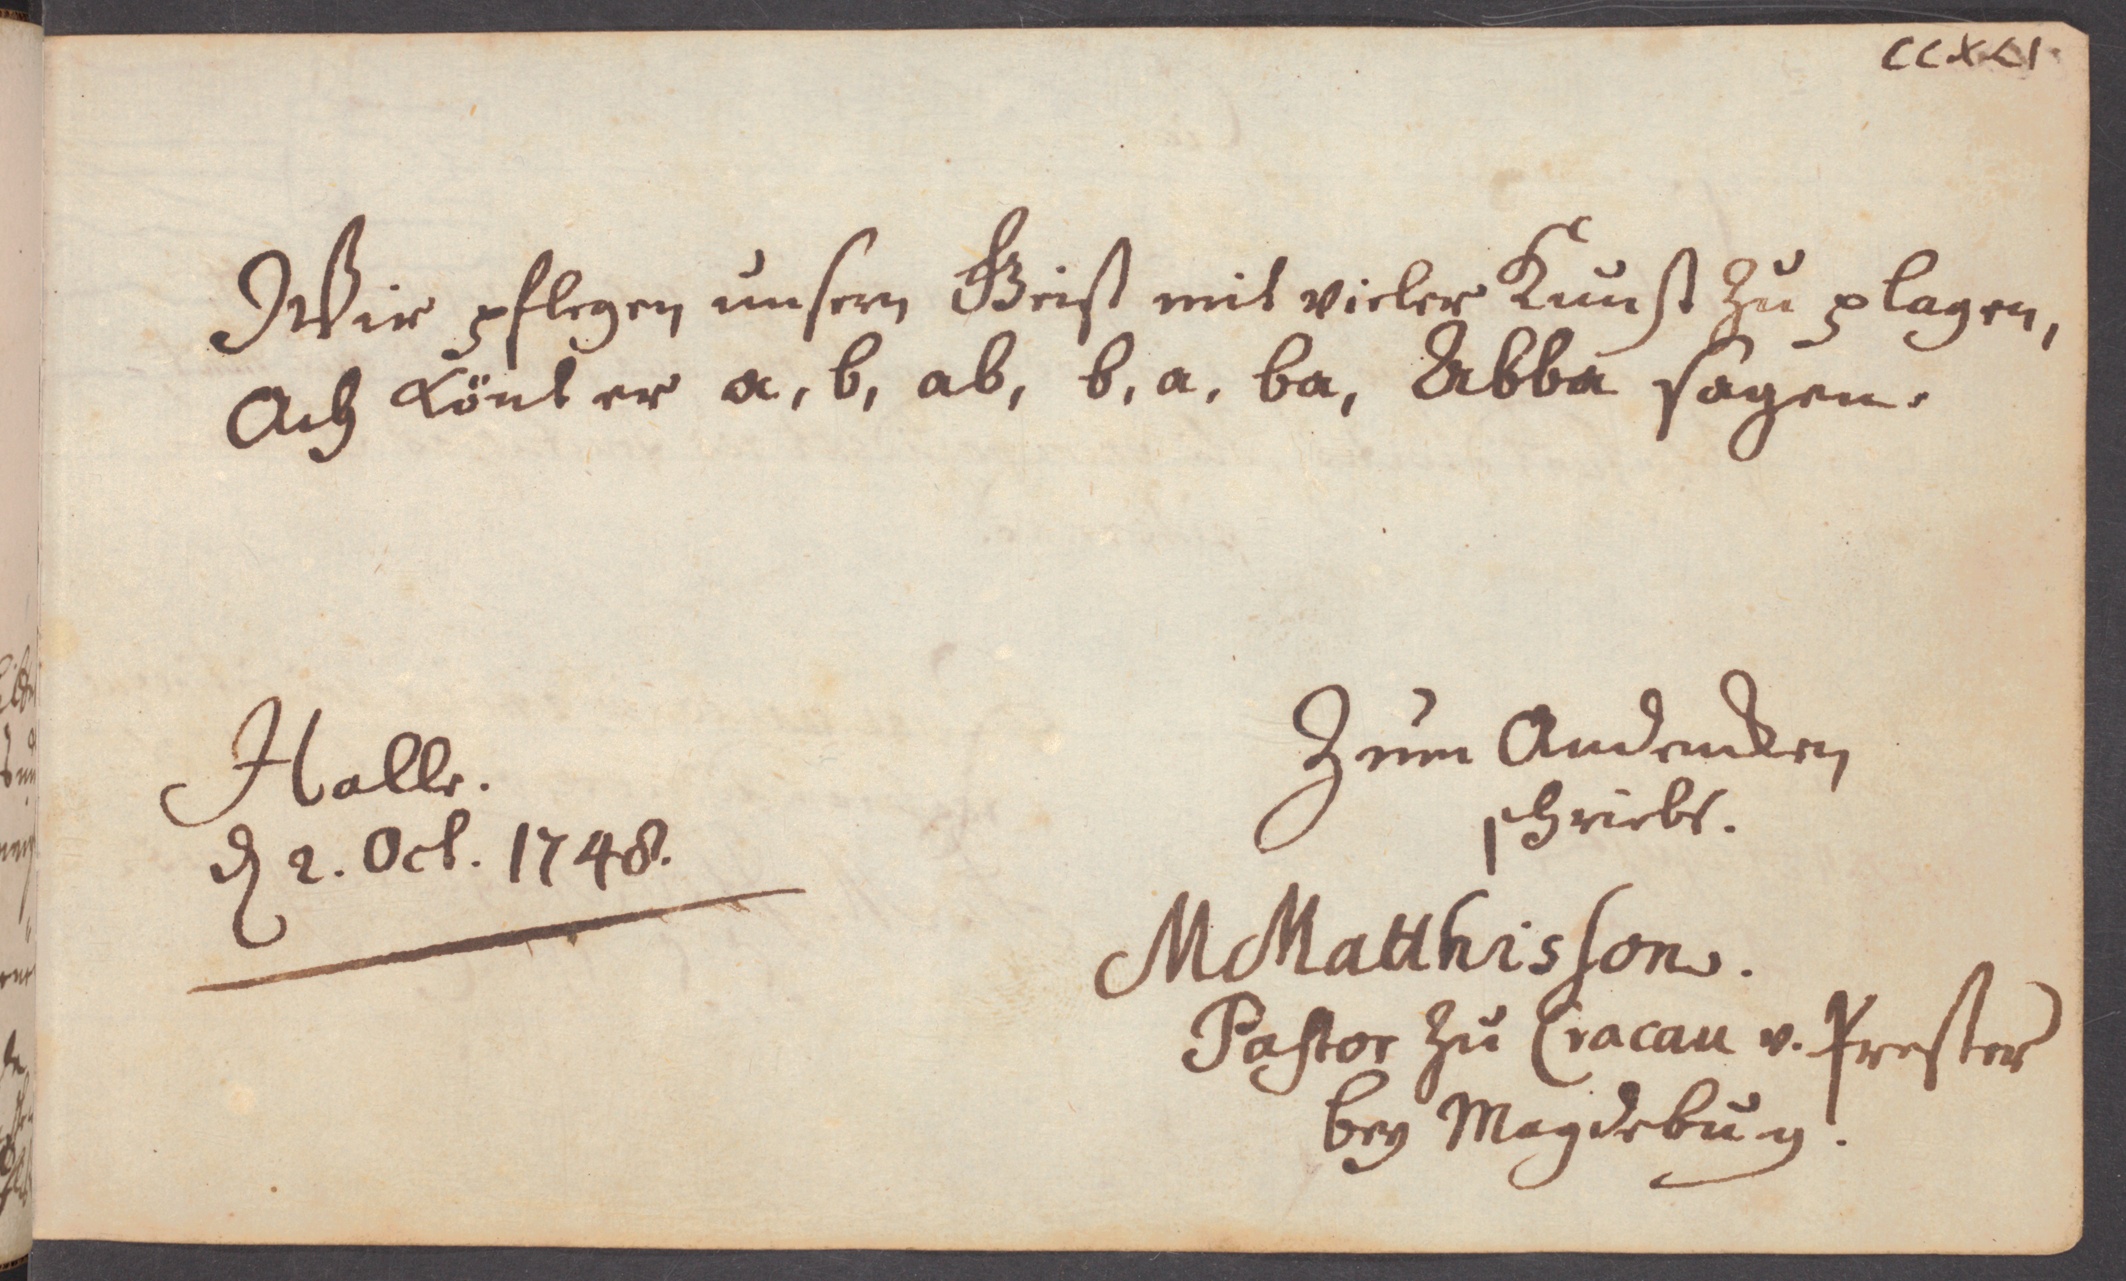 CCXCI
Wir pflegen unsern Geist mit vieler Kunst zu plagen,
Ach könt er a, b, ab, b, a, ba, Abba sagen.
Halle.
d 2. Oct. 1748.
Zum Andencken
schriebs.
M Matthisson.
Pastor zu Cracau v. Prester
bey Magdeburg.